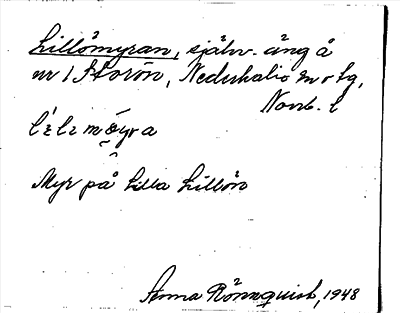 Lillömyran, själv. äng å
nr 1 Storön, Nederkalix sn o tg,
Norrb. l
Myr på Lilla Lillön
Anna Rönnquist, 1948